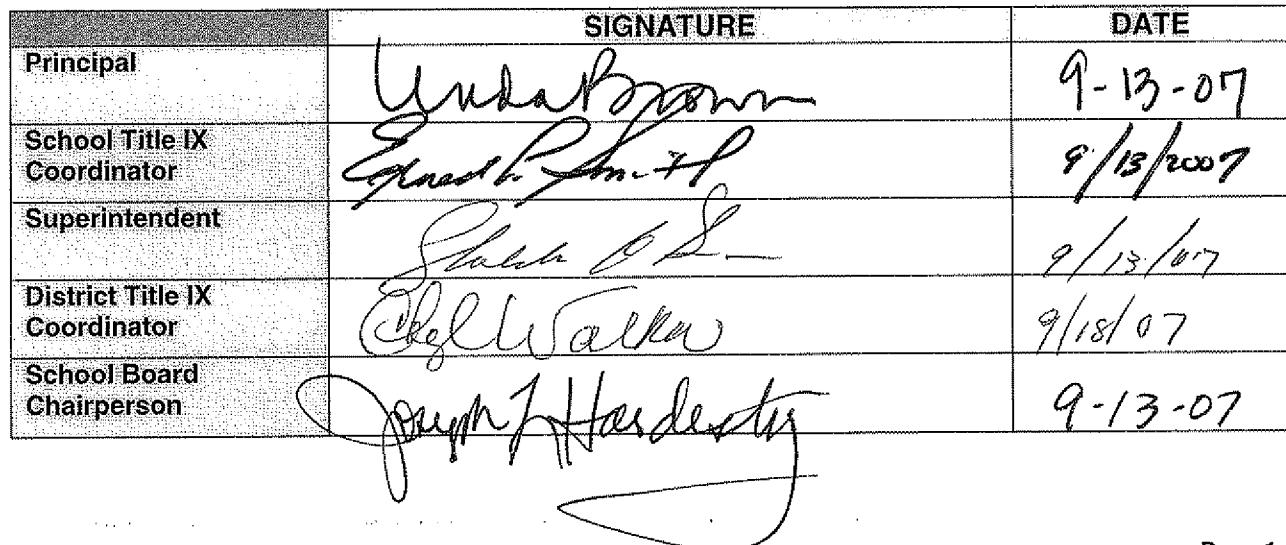 SIGNATURE DATE
Principal Linda Brown 9-13-07
School Title IX
Coordinator Smith 9/13/2007
Superintendent 9/13/07
District Title IX
Coordinator Walker 9/18/07
School Board
Chairperson Joseph L Hardesty 9-13-07